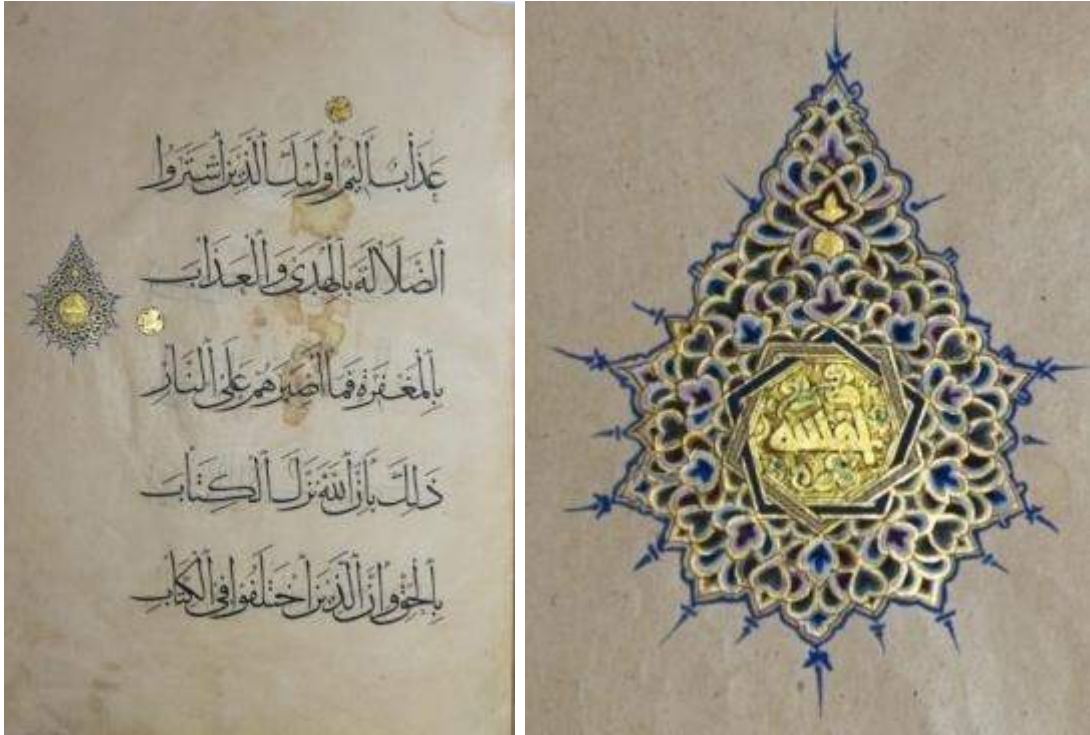 عَذَابٌ أَلِيمٌ أُولَٰئِكَ الَّذِينَ اشْتَرَوُا
الضَّلَالَةَ بِالْهُدَىٰ وَالْعَذَابَ
بِالْمَغْفِرَةِ فَمَا أَصْبَرَهُمْ عَلَى النَّارِ
ذَٰلِكَ بِأَنَّ اللَّهَ نَزَّلَ الْكِتَابَ
بِالْحَقِّ وَإِنَّ الَّذِينَ اخْتَلَفُوا فِي الْكِتَابِ